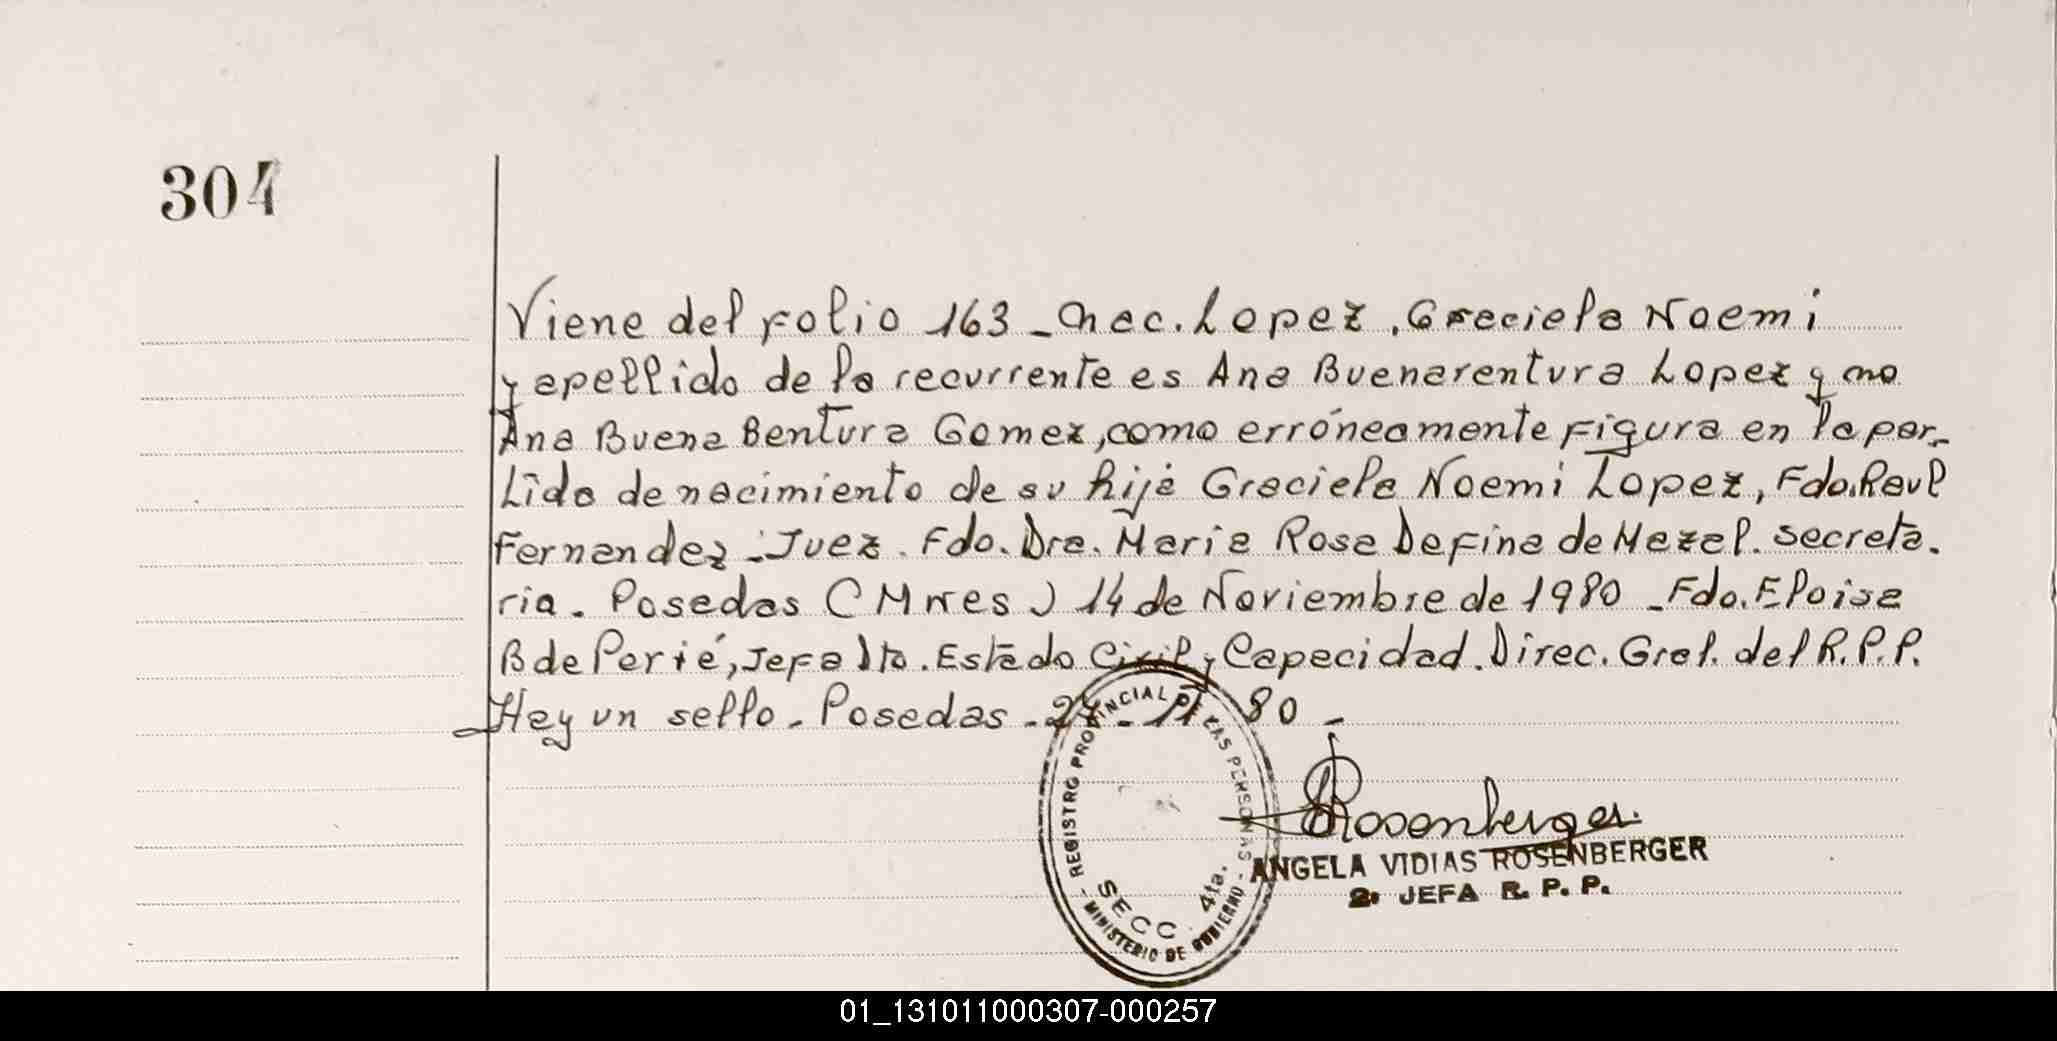 304
Viene del Folio 163 - Nac. Lopez, Graciela Noemi
y apellido de la recurrente es Ana Buenaventura Lopez y no
Ana Buena Bentura Gomez, como erróneamente Figura en la par-
tida de nacimiento de su hija Graciela Noemi Lopez, Fdo. Raul
Fernandez - Juez. Fdo. Dra. Maria Rosa Defina de Mazal. Secreta-
ria. Posadas (Mnes) 14 de Noviembre de 1980 - Fdo. Eloisa
B de Perié, Jefa Dto. Estado Civil y Capacidad. Direc. Gral. del R.P.P.
Hay un sello. Posadas - 27 - 11 - 80 -
- REGISTRO PROVINCIAL DE LAS PERSONAS -
SECC. 4ta.
MINISTERIO DE GOBIERNO
Rosenberger
ANGELA VIDIAS ROSENBERGER
2. JEFA R. P. P.
01_131011000307-000257